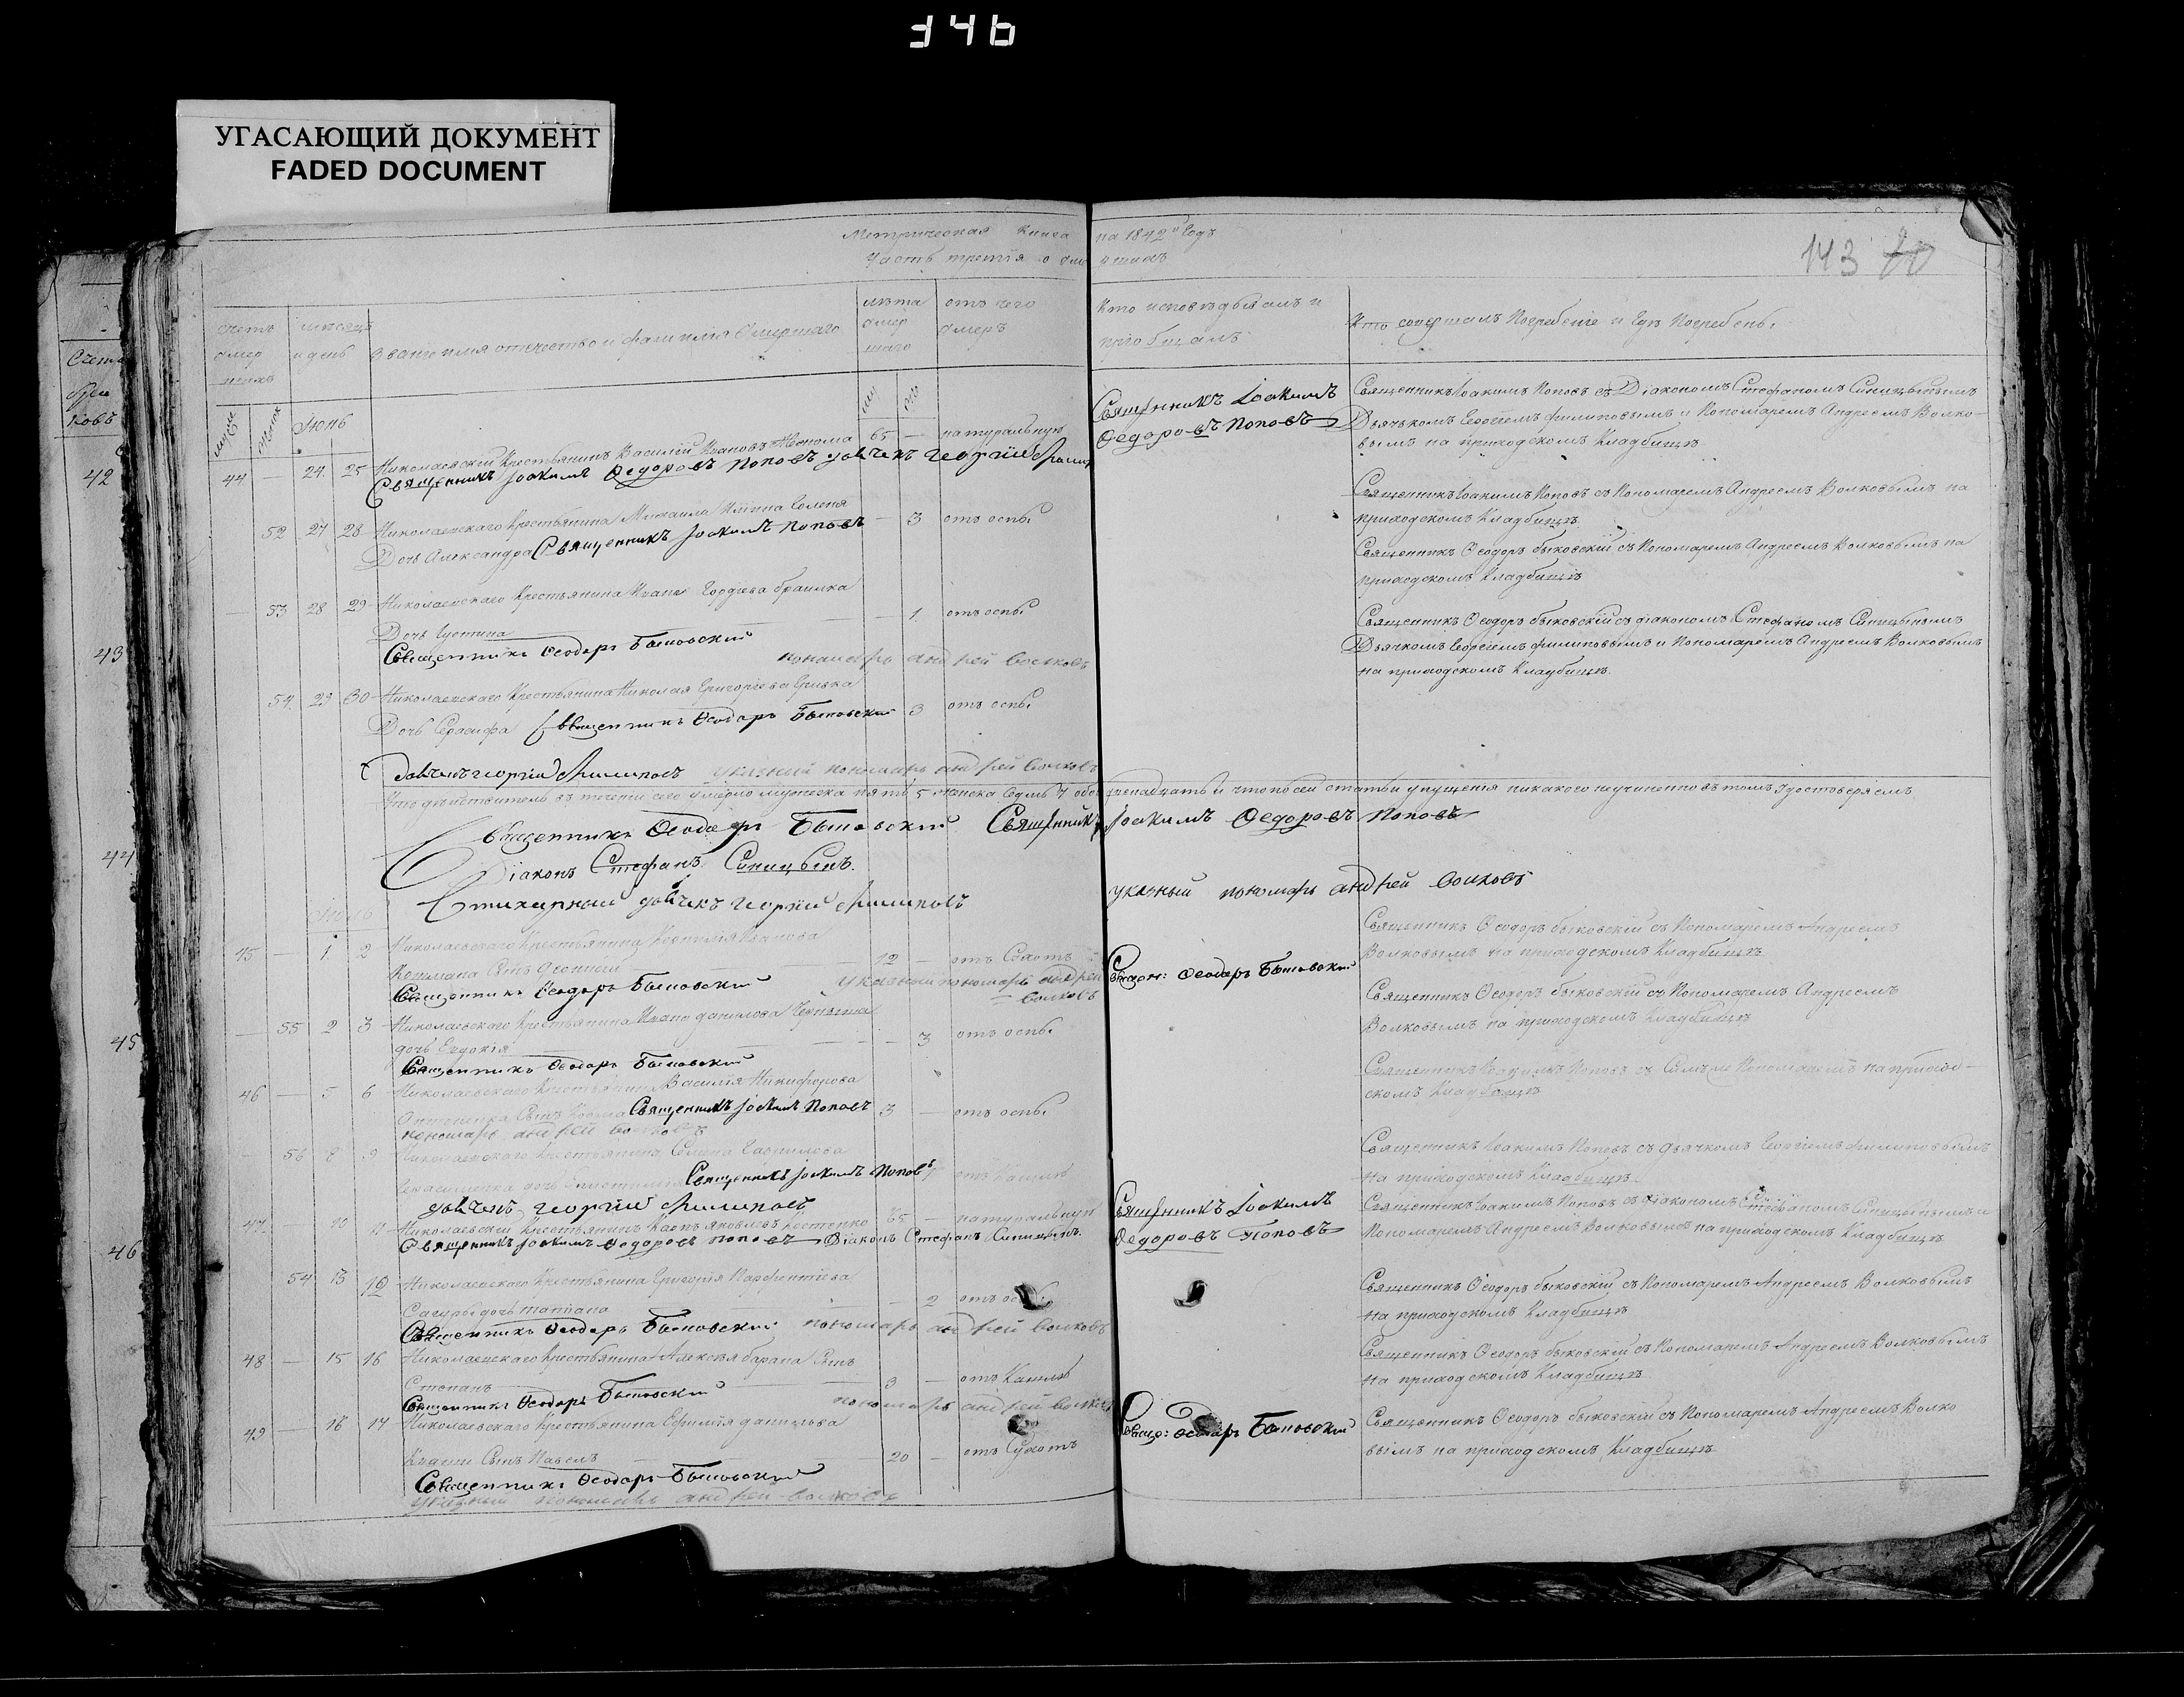 346
УГАСАЮЩИЙ ДОКУМЕНТ
FADED DOCUMENT
Метрическая Книга на 1842й Годъ
Часть третія о умершихъ
143
Счетъ умершихъ
мѣсяцъ и день
Званіе имя отчество и фамилія Умершаго
лѣта умершаго
отъ чего умеръ
Кто исповѣдывалъ и пріобщалъ
Кто совершалъ Погребеніе и Гдѣ Погребенъ
Іюнь
44 — 24. 25 Николаевскій Крестьянинъ Василій Ивановъ 65 — натуральную
Священникъ Іоакимъ Федоровъ Поповъ дьячекъ георгій
Священникъ Іоакимъ
Федоровъ Поповъ
Священникъ Іоакимъ Поповъ съ Діакономъ Стефаномъ Синицынымъ
Дьячкомъ Георгіемъ филиповымъ и Пономаремъ Андреемъ Волко-
вымъ на приходскомъ Кладбищѣ.
52 27 28 Николаевскаго Крестьянина Михаила — 3 отъ оспы
Дочь Александра Священникъ Іоакимъ Поповъ
Священникъ Іоакимъ Поповъ съ Пономаремъ Андреемъ Волковымъ на
приходскомъ Кладбищѣ.
— 53 28 29 Николаевскаго Крестьянина Ивана Гордіева
Дочь Іустина — 1 отъ оспы
Священникъ Ѳеодоръ Быковскій
пономарь андрей волковъ
Священникъ Ѳеодоръ быковскій съ Пономаремъ Андреемъ Волковымъ на
приходскомъ Кладбищѣ
54. 29 30 Николаевскаго Крестьянина Николая Григоріева
Дочь Священникъ Ѳеодоръ Быковскій 3 отъ оспы
дьячекъ георгій Филиповъ указный пономарь андрей волковъ
Священникъ Ѳеодоръ быковскій съ діакономъ Стефаномъ Синицынымъ
Дьячкомъ Георгіемъ филиповымъ и Пономаремъ Андреемъ Волковымъ
на приходскомъ Кладбищѣ.
Что дѣйствительно въ теченіи сего умерло мужеска пять 5 женска седмь 7 и что по сей статьи упущенія никакого неучиненно въ томъ Удостоверяемъ
Священникъ Ѳеодоръ Быковскій Священникъ Іоакимъ Федоровъ Поповъ
Діаконъ Стефанъ Синицынъ.
Стихарный дьячекъ георгій Филиповъ
указный пономарь андрей волковъ
Іюль
45 — 1 2 Николаевскаго Крестьянина Ивanова
Сынъ — 12 — отъ Сухотъ
Священникъ Ѳеодоръ Быковскій указный пономарь андрей
волковъ
Священ: Ѳеодоръ Быковскій
Священникъ Ѳеодоръ быковскій съ Пономаремъ Андреемъ
Волковымъ на приходскомъ Кладбищѣ
— 55 2 3 Николаевскаго Крестьянина Ивана данилова
дочь Евдокія — 3 отъ оспы
Священникъ Ѳеодоръ Быковскій
Священникъ Ѳеодоръ быковскій съ Пономаремъ Андреемъ
Волковымъ на приходскомъ Кладбищѣ
46 — 5 6 Николаевскаго Крестьянина Василія Никифорова
Сынъ Священникъ Іоакимъ Поповъ 3 — отъ оспы
пономарь андрей волковъ
Священникъ Іоакимъ Поповъ съ Пономаремъ на приход-
скомъ Кладбищѣ
56 8 9 Николаевскаго Крестьянина Гаврилова
дочь Священникъ Іоакимъ Поповъ отъ Кашлю
дьячекъ георгій Филиповъ
Священникъ Іоакимъ Поповъ съ дьячкомъ Георгіемъ филиповымъ
на приходскомъ Кладбищѣ.
47 — 10 11 Николаевскій Крестьянинъ яковлевъ 65 — натуральную
Священникъ Іоакимъ Федоровъ Поповъ Діаконъ Стефанъ Синицынъ.
Священникъ Іоакимъ
Федоровъ Поповъ
Священникъ Іоакимъ Поповъ съ діакономъ Стефаномъ Синицынымъ и
Пономаремъ Андреемъ Волковымъ на приходскомъ Кладбищѣ
54 13 Николаевскаго Крестьянина Григорія Парфентіева
дочь татіана — 2 отъ
Священникъ Ѳеодоръ Быковскій пономарь андрей волковъ
Священникъ Ѳеодоръ быковскій съ Пономаремъ Андреемъ Волковымъ
на приходскомъ Кладбищѣ
48 — 15 16 Николаевскаго Крестьянина Алексѣя барана Сынъ
Степанъ — 3 — отъ Кашлю
Священникъ Ѳеодоръ Быковскій пономарь андрей волковъ
Священникъ Ѳеодоръ быковскій съ Пономаремъ Андреемъ Волковымъ
на приходскомъ Кладбищѣ
49 — 16 17 Николаевскаго Крестьянина Ефимія данилова
Сынъ Павелъ — 20 — отъ Сухотъ
Священникъ Ѳеодоръ Быковскій
указный пономарь андрей волковъ
Священ: Ѳеодоръ Быковскій
Священникъ Ѳеодоръ быковскій съ Пономаремъ Андреемъ Волко
вымъ на приходскомъ Кладбищѣ
42
43
44
45
46